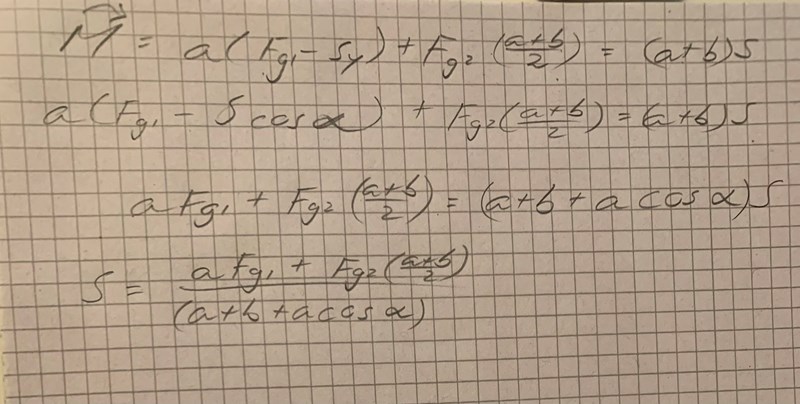 M⃗ = a(Fg₁ - Sy) + Fg₂ (a+b/2) = (a+b)S
a(Fg₁ - S cos α) + Fg₂(a+b/2) = (a+b)S
a Fg₁ + Fg₂ (a+b/2) = (a+b + a cos α)S
S = a Fg₁ + Fg₂(a+b/2) / (a+b + a cos α)